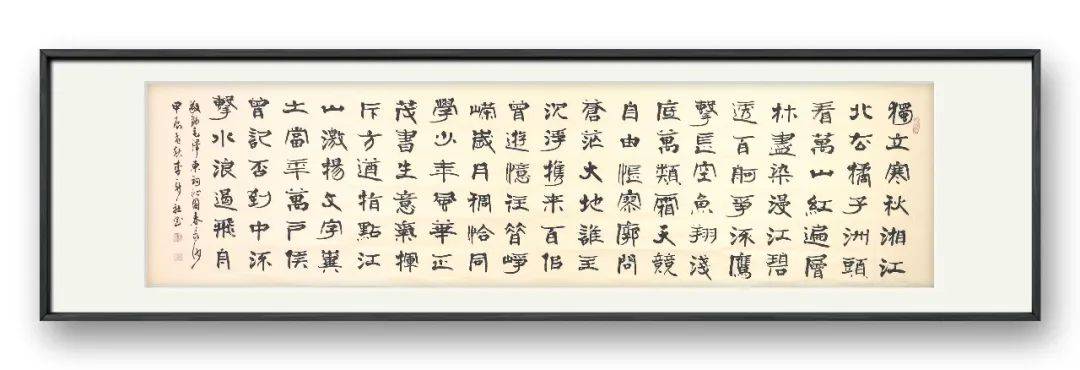 獨立寒秋湘江
北去橘子洲頭
看萬山紅遍層
林盡染漫江碧
透百舸爭流鷹
擊長空魚翔淺
底萬類霜天競
自由悵寥廓問
蒼茫大地誰主
沉浮携來百侣
曾遊憶往昔崢
嶸歲月稠恰同
學少年風華正
茂書生意氣揮
斥方遒指點江
山激揚文字糞
土當年萬户侯
曾記否到中流
擊水浪遏飛舟
敬録毛澤東詞沁園春長沙
甲辰秋李書